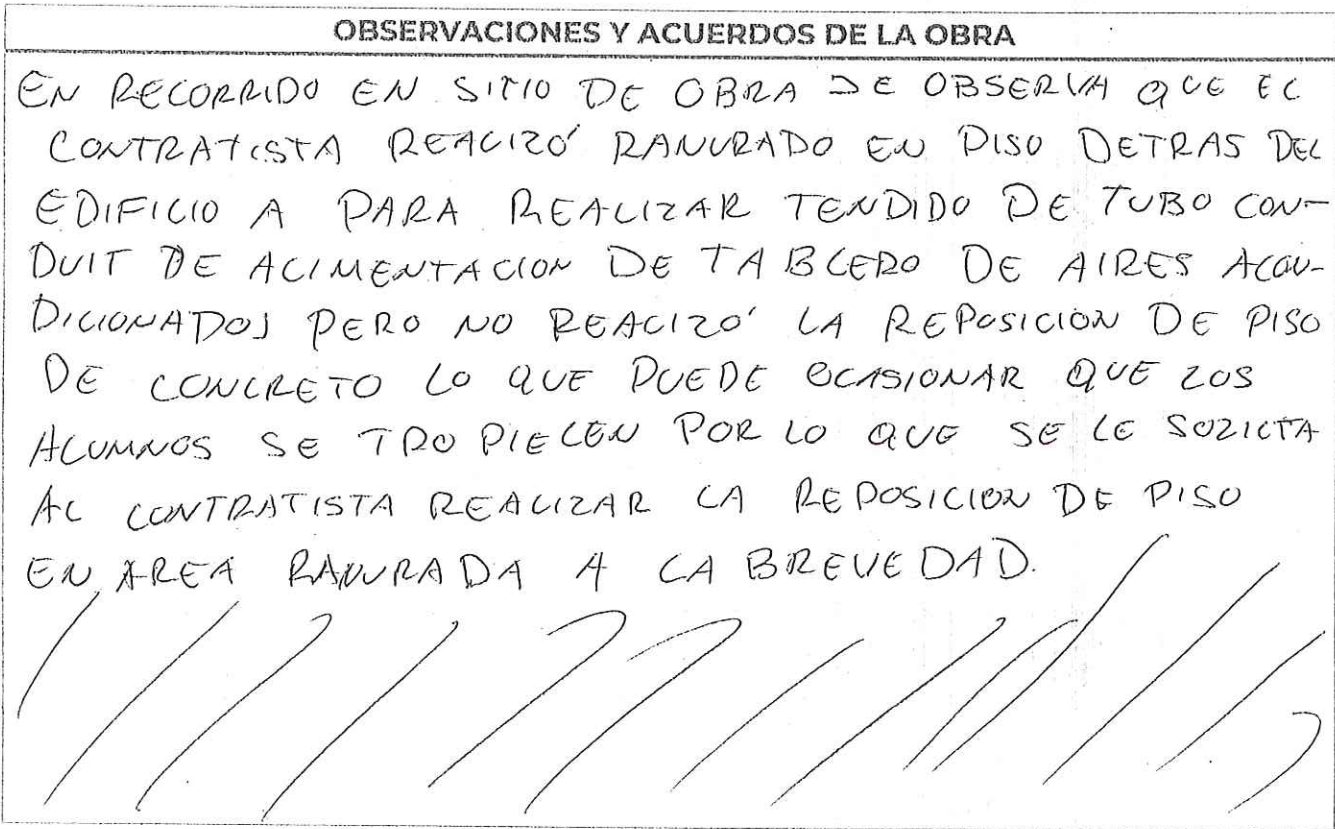 OBSERVACIONES Y ACUERDOS DE LA OBRA
EN RECORRIDO EN SITIO DE OBRA SE OBSERVA QUE EL
CONTRATISTA REALIZÓ RANURADO EN PISO DETRAS DEL
EDIFICIO A PARA REALIZAR TENDIDO DE TUBO CON-
DUIT DE ALIMENTACION DE TABLERO DE AIRES ACON-
DICIONADOS PERO NO REALIZÓ LA REPOSICION DE PISO
DE CONCRETO LO QUE PUEDE OCASIONAR QUE LOS
ALUMNOS SE TROPIECEN POR LO QUE SE LE SOLICTA
AL CONTRATISTA REALIZAR LA REPOSICION DE PISO
EN AREA RANURADA A LA BREVEDAD.